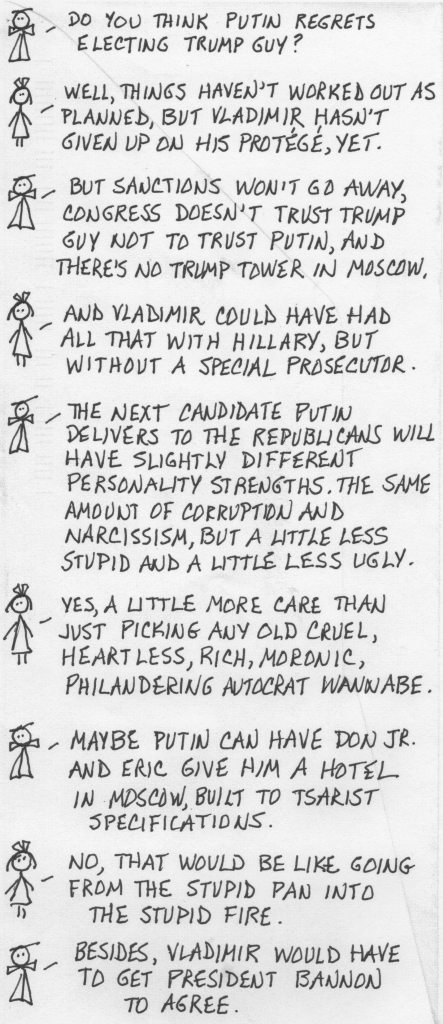 DO YOU THINK PUTIN REGRETS
ELECTING TRUMP GUY?
WELL, THINGS HAVEN'T WORKED OUT AS
PLANNED, BUT VLADIMIR HASN'T
GIVEN UP ON HIS PROTÉGÉ, YET.
BUT SANCTIONS WON'T GO AWAY,
CONGRESS DOESN'T TRUST TRUMP
GUY NOT TO TRUST PUTIN, AND
THERE'S NO TRUMP TOWER IN MOSCOW.
AND VLADIMIR COULD HAVE HAD
ALL THAT WITH HILLARY, BUT
WITHOUT A SPECIAL PROSECUTOR.
THE NEXT CANDIDATE PUTIN
DELIVERS TO THE REPUBLICANS WILL
HAVE SLIGHTLY DIFFERENT
PERSONALITY STRENGTHS. THE SAME
AMOUNT OF CORRUPTION AND
NARCISSISM, BUT A LITTLE LESS
STUPID AND A LITTLE LESS UGLY.
YES, A LITTLE MORE CARE THAN
JUST PICKING ANY OLD CRUEL,
HEARTLESS, RICH, MORONIC,
PHILANDERING AUTOCRAT WANNABE.
MAYBE PUTIN CAN HAVE DON JR.
AND ERIC GIVE HIM A HOTEL
IN MOSCOW, BUILT TO TSARIST
SPECIFICATIONS.
NO, THAT WOULD BE LIKE GOING
FROM THE STUPID PAN INTO
THE STUPID FIRE.
BESIDES, VLADIMIR WOULD HAVE
TO GET PRESIDENT BANNON
TO AGREE.